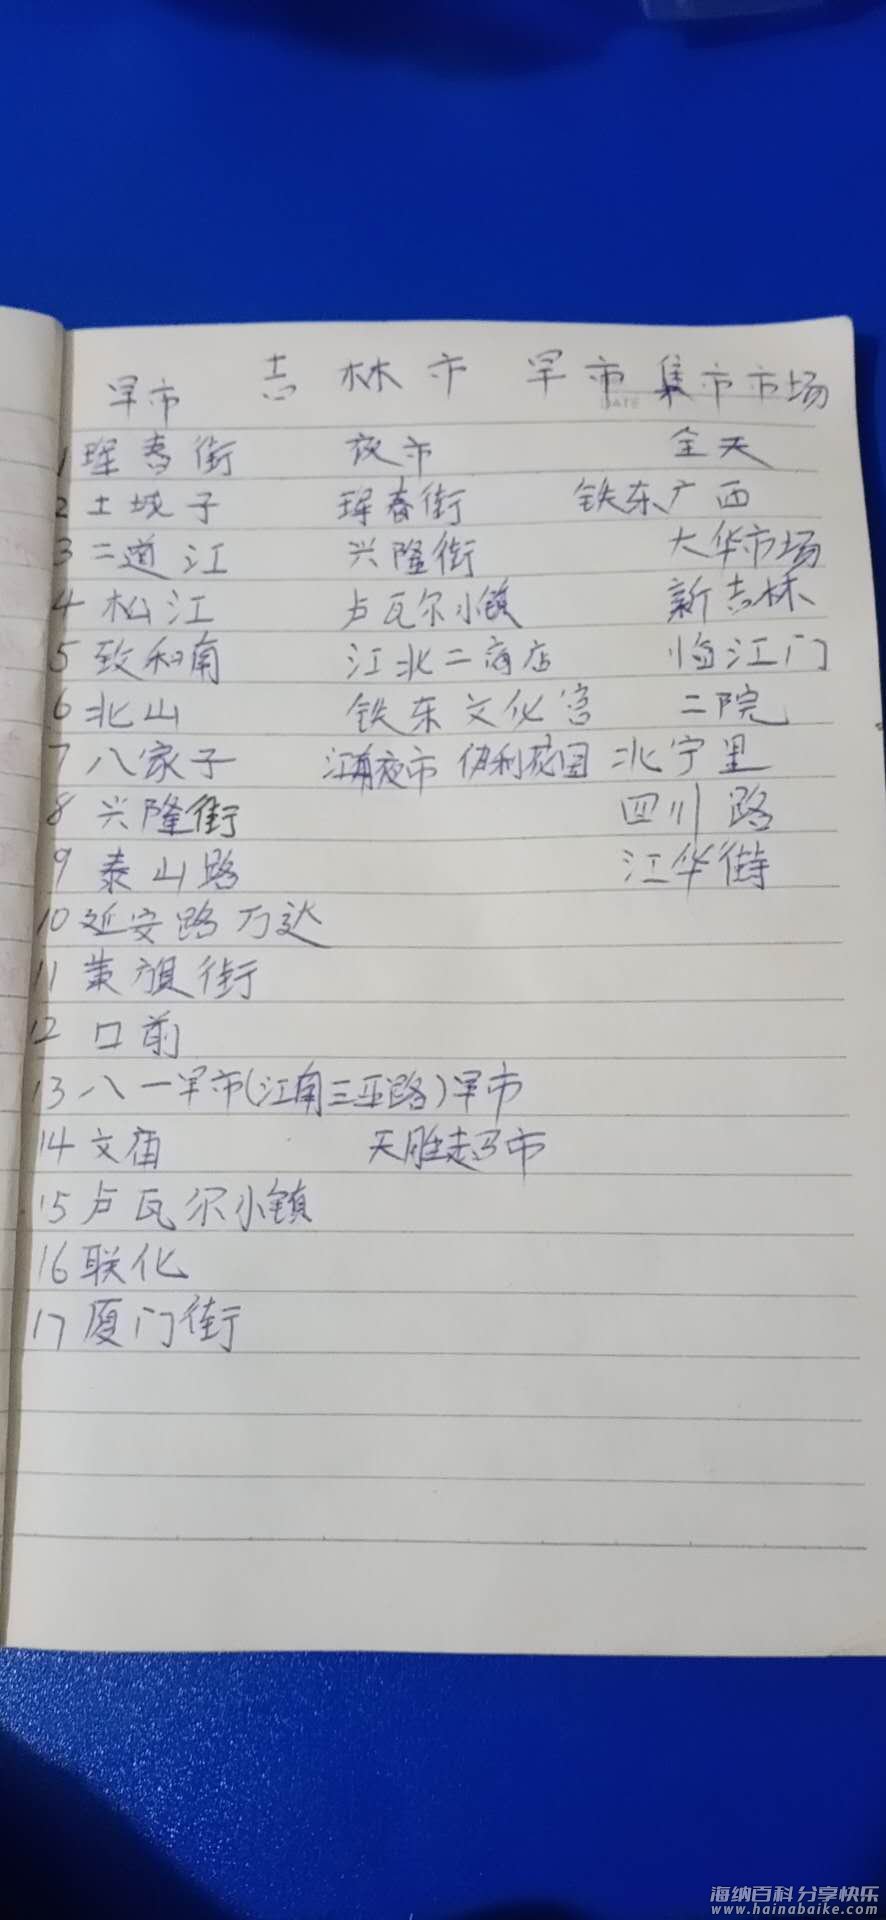 吉林市早市集市市场
早市
1 珲春街 夜市 全天
2 土城子 珲春街 铁东广西
3 二道江 兴隆街 大华市场
4 松江 卢瓦尔小镇 新吉林
5 致和南 江北二商店 临江门
6 北山 铁东文化宫 二院
7 八家子 江南夜市 伊利花园 北宁里
8 兴隆街 四川路
9 泰山路 江华街
10 延安路万达
11 黄旗街
12 口前
13 八一早市(江南三亚路)早市
14 文庙 天胜起了市
15 卢瓦尔小镇
16 联化
17 厦门街
DATE
海纳百科 分享快乐
www.hainabaike.com